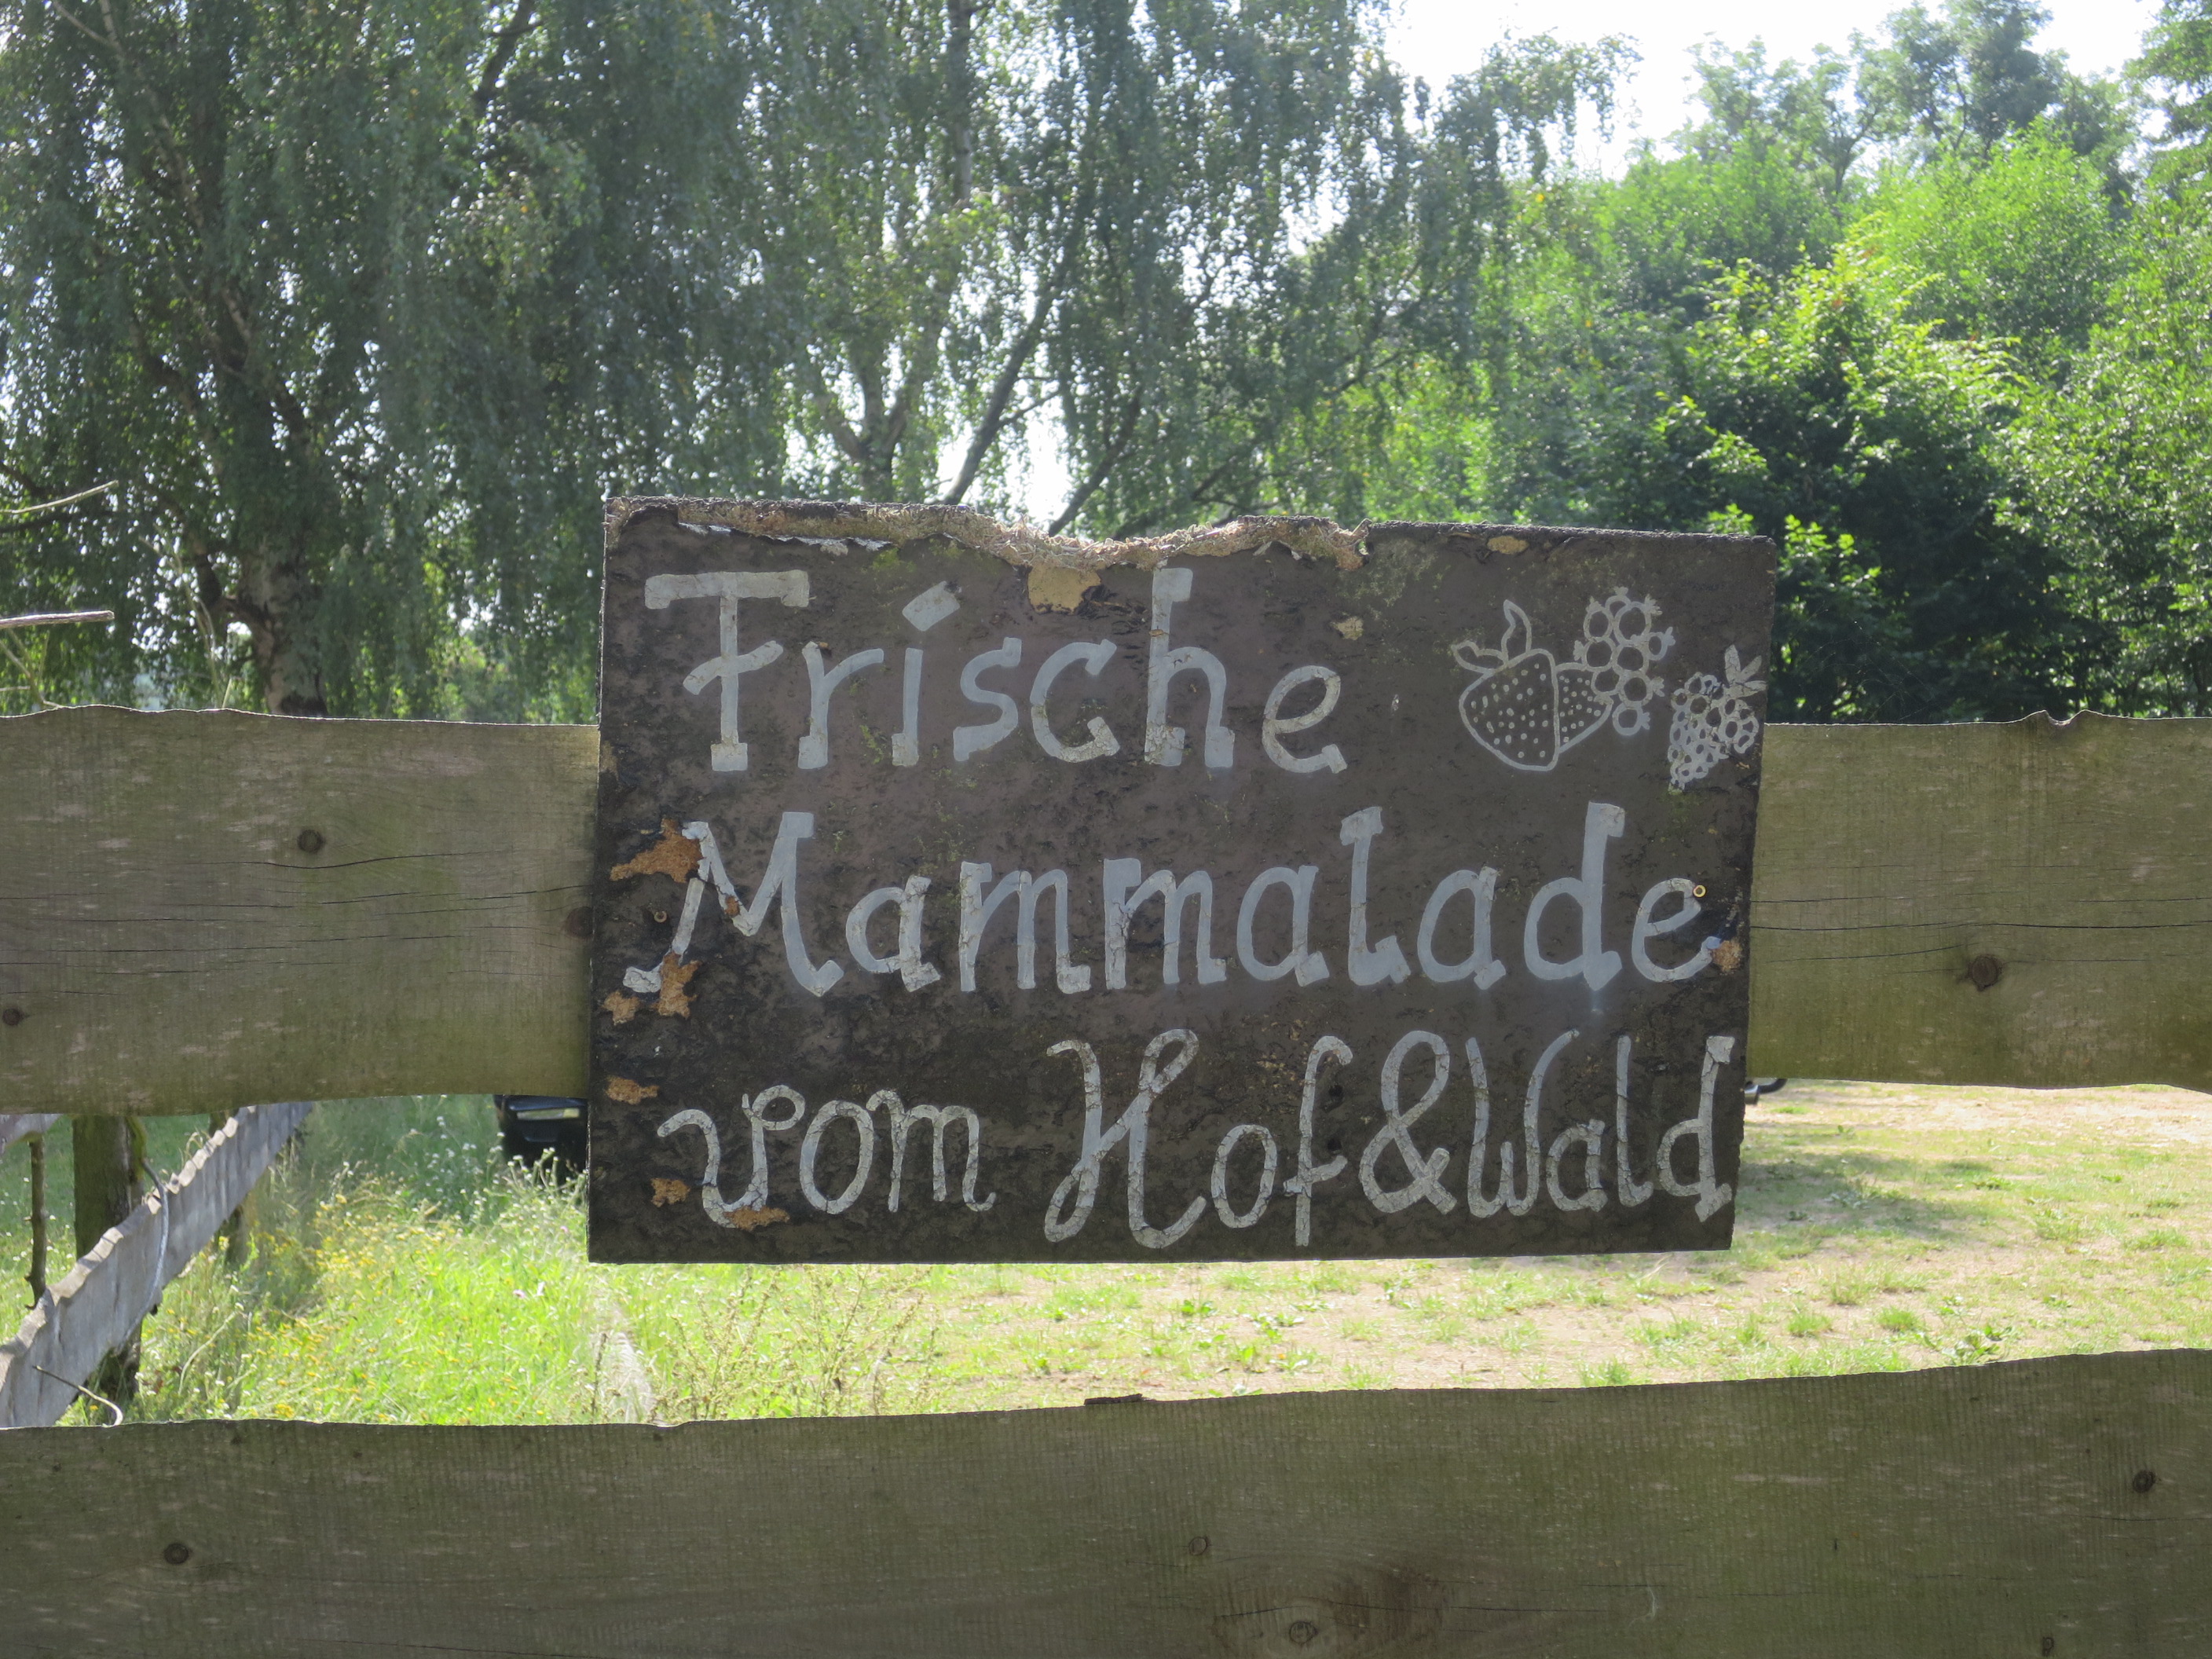 Frische
Mammalade
vom Hof&Wald